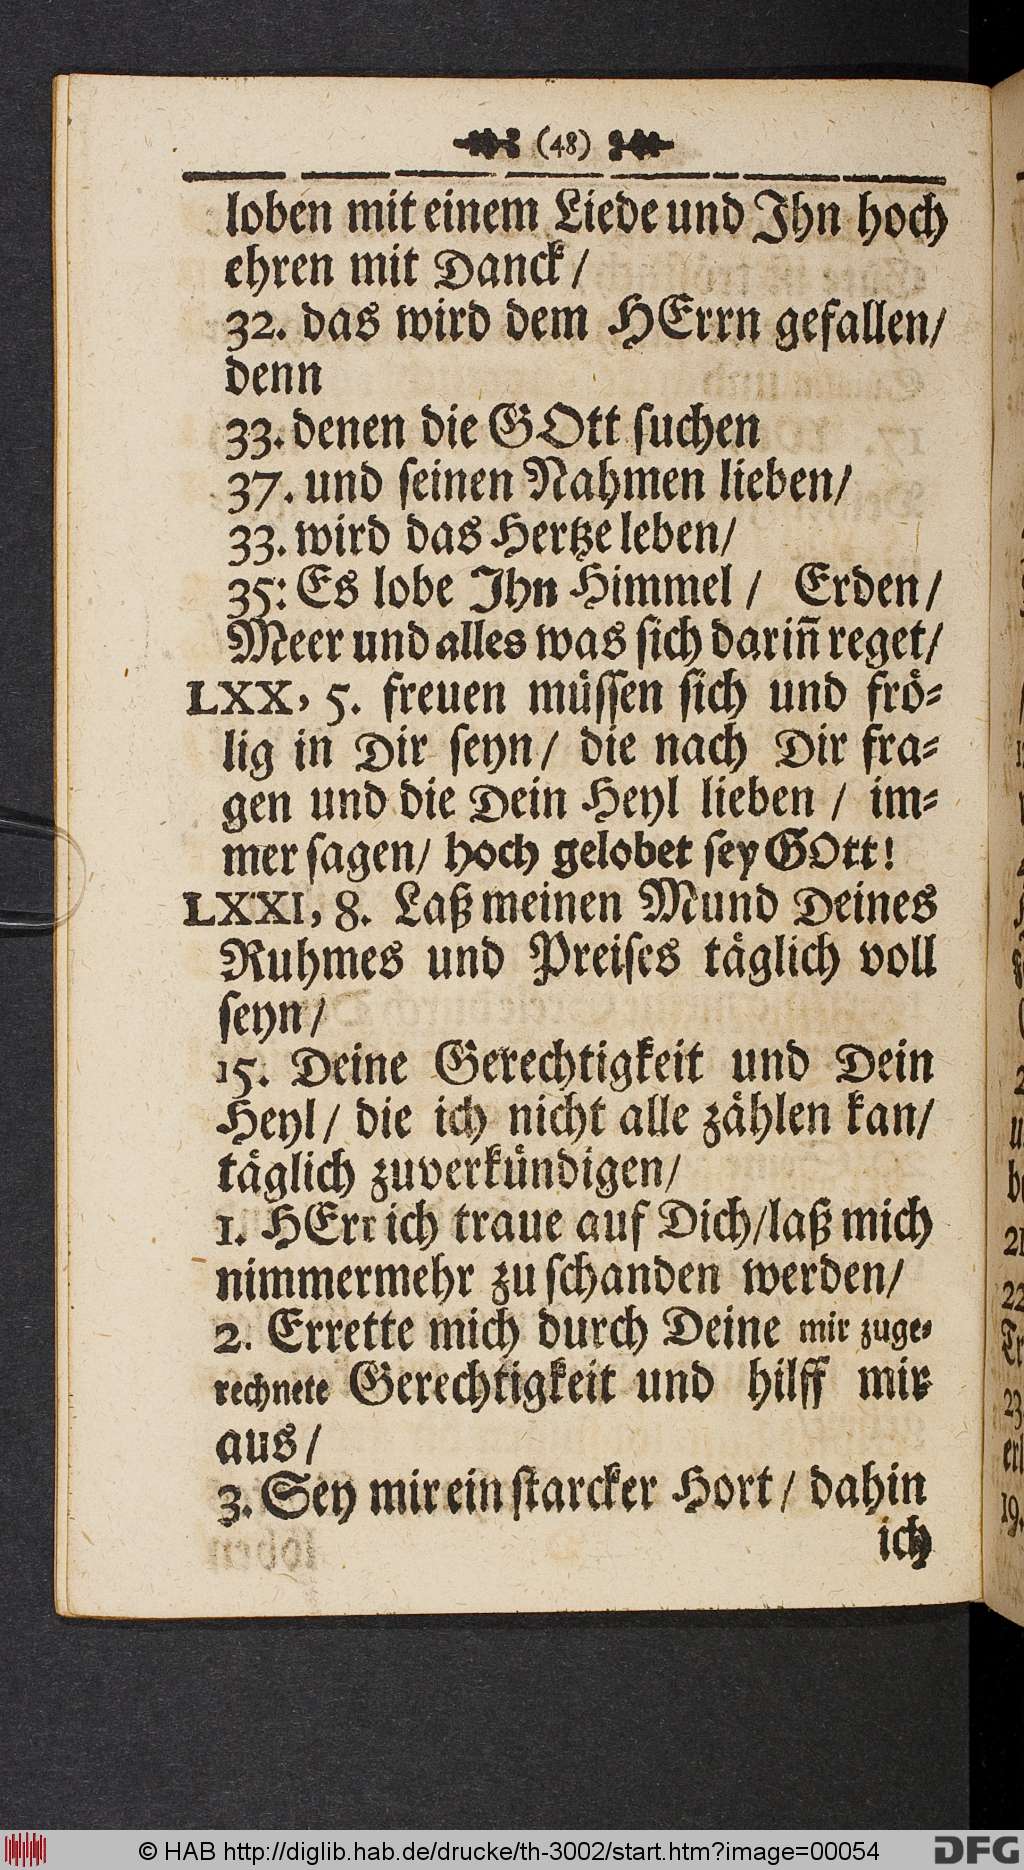 (48)
loben mit einem Liede und Ihn hoch
ehren mit Danck/
32. das wird dem HErrn gefallen/
denn
33. denen die GOtt suchen
37. und seinen Nahmen lieben/
33. wird das Hertze leben/
35: Es lobe Ihn Himmel / Erden/
Meer und alles was sich dariñ reget/
LXX, 5. freuen müssen sich und frö-
lig in Dir seyn/ die nach Dir fra-
gen und die Dein Heyl lieben / im-
mer sagen/ hoch gelobet sey GOtt!
LXXI, 8. Laß meinen Mund Deines
Ruhmes und Preises täglich voll
seyn/
15. Deine Gerechtigkeit und Dein
Heyl/ die ich nicht alle zählen kan/
täglich zuverkündigen/
1. HErr ich traue auf Dich/laß mich
nimmermehr zu schanden werden/
2. Errette mich durch Deine mir zuge-
rechnete Gerechtigkeit und hilff mir
aus/
3. Sey mir ein starcker Hort/ dahin
ich
© HAB http://diglib.hab.de/drucke/th-3002/start.htm?image=00054
DFG